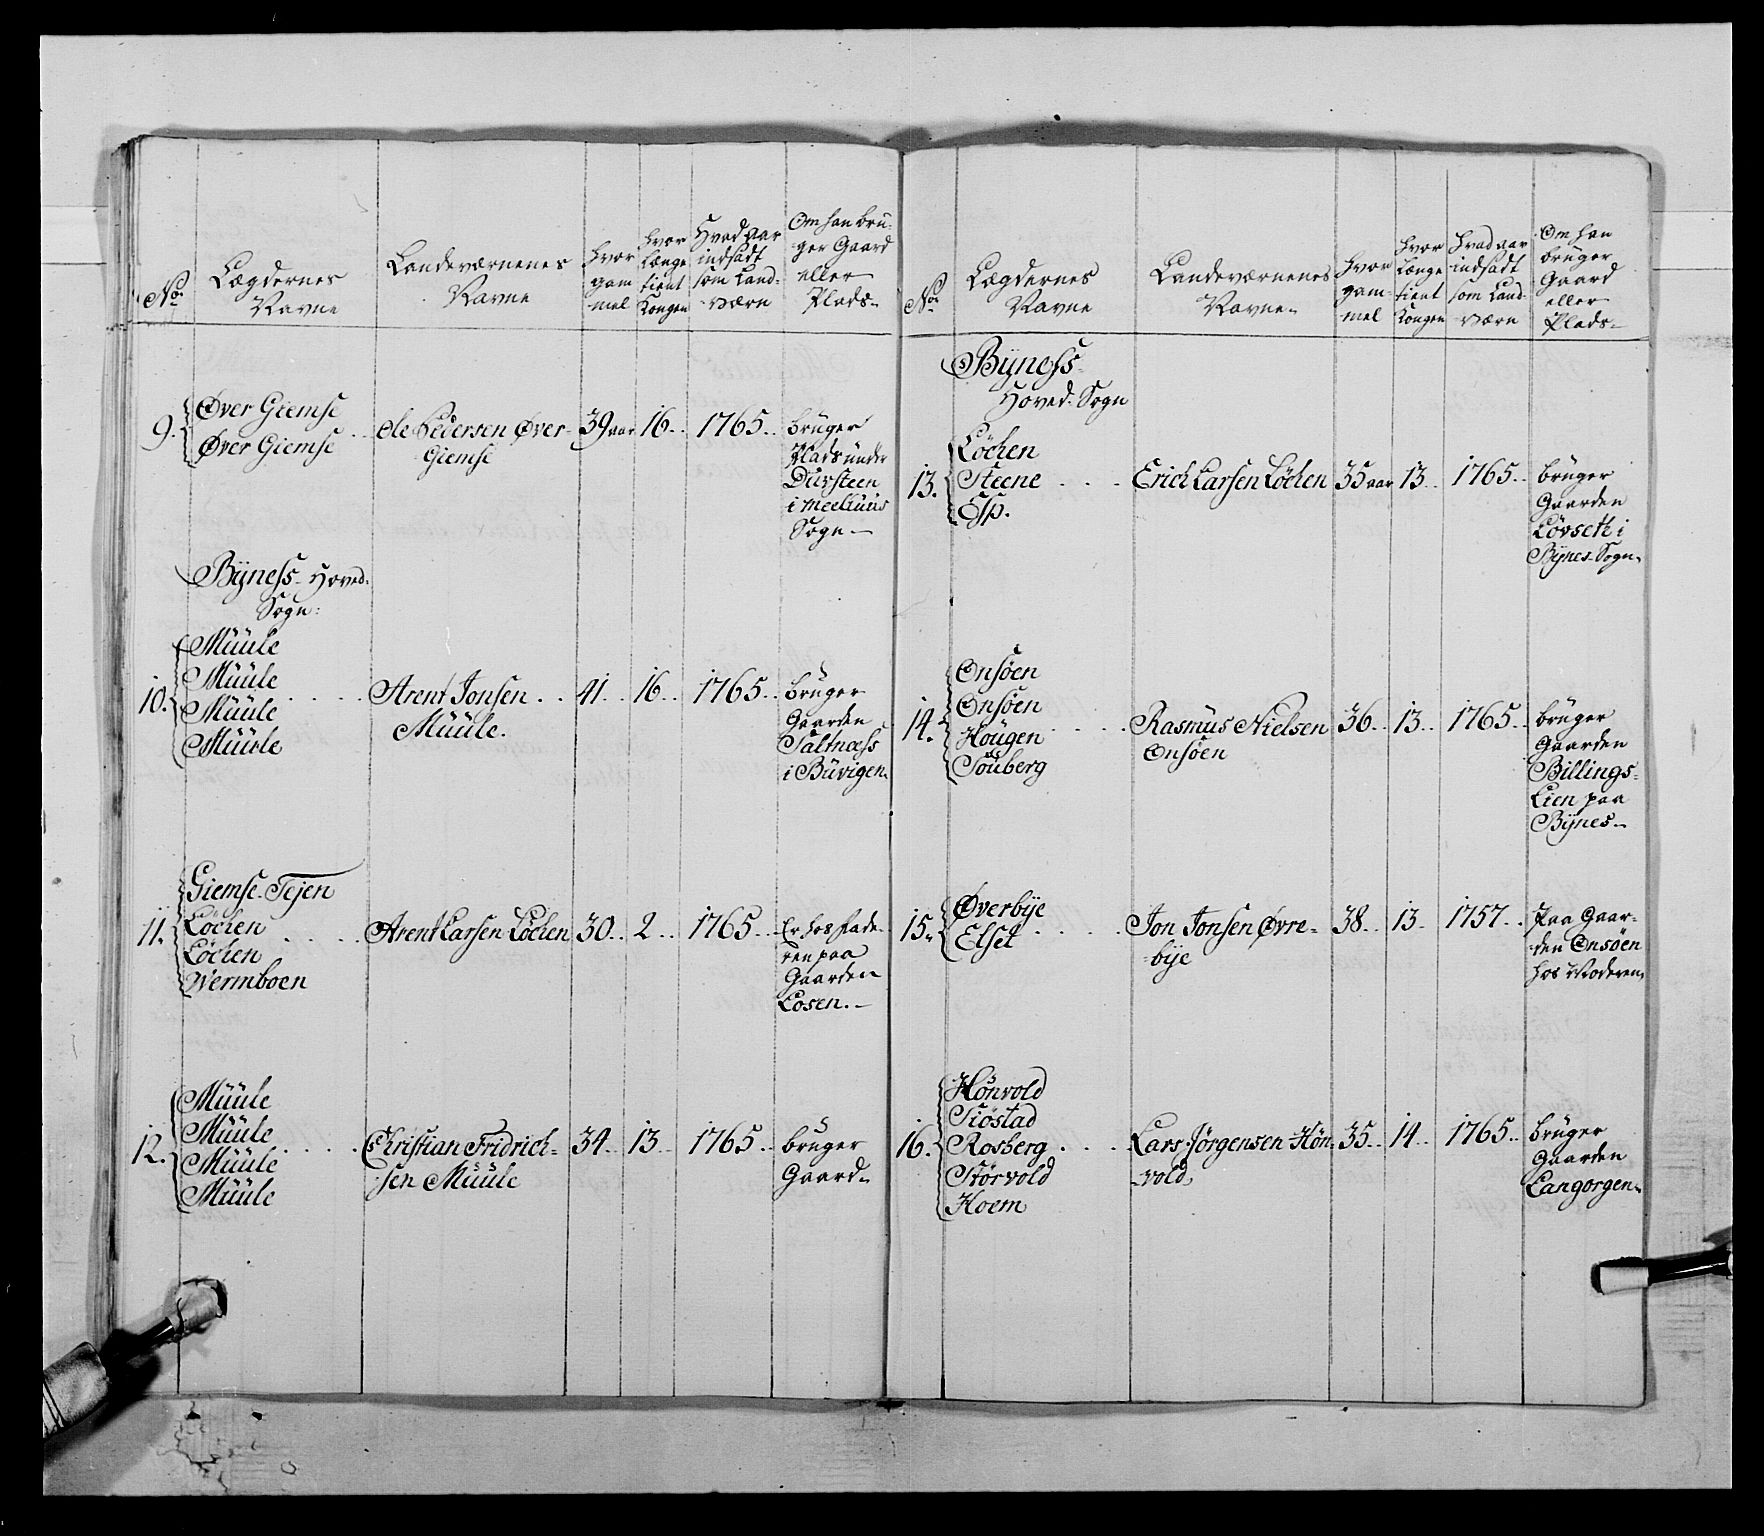 No:
Lægdernes
Navne
Landeværnenes
Navne
hvor
gam
mel
hvor
længe
tient
Kongen
Hvad aar
indsadt
som Land-
værn
Om han bru-
ger Gaard
eller
Plads-
9.
Øver Giemse
Øver Giemse
Ole Pedersen Øver-
Giemse
39 aar
16.
1765.
bruger
Plads under
Dursteen
i Meelhuus
Sogn-
Bÿness-Hoved-
Sogn:
10.
Müüle
Müüle
Müüle
Müüle
Arent Jonsen
Müüle.
41
16
1765.
bruger
Gaarden
Saltnæss
i Büvigen.
11.
Giemse-Tejen
Löchen
Löchen
Wermboen
Arent Larsen Löchen
30.
2
1765.
Er hos Fade-
ren paa
Gaarden
Losen.-
12.
Müüle
Müüle
Müüle
Müüle
Christian Fridrich-
sen Müüle
34
13
1765.
bruger
Gaard-
No:
Lægdernes
Navne
Landeværnenes
Navne-
hvor
gam-
mel
hvor
længe
tient
Kongen
hvad aar
indsadt
som Land-
værn
Om han
bruger
Gaard
eller
Plads-
Bÿness-
Hoved-Sogn
13.
Löchen
Steene
Esp.
Erich Larsen Löchen
35 aar
13
1765.
bruger
Gaarden
Lövseth i
Bÿnes-Sogn.
14.
Onsöen
Onsöen
Höugen
Söuberg
Rasmüs Nielsen
Onsöen
36
13
1765
bruger
Gaarden
Billings-
Lien paa
Bÿnes-
15.
Øverbÿe
Elset
Jon Jonsen Øvre-
bÿe
38
13
1757
Paa Gaar-
den Onsöen
hos Moderen
16.
Hönvold
Siöstad
Rosberg
Störvold
Hoem
Lars Jörgensen Hön-
vold
35
14
1765
bruger
Gaarden
Langorgen-